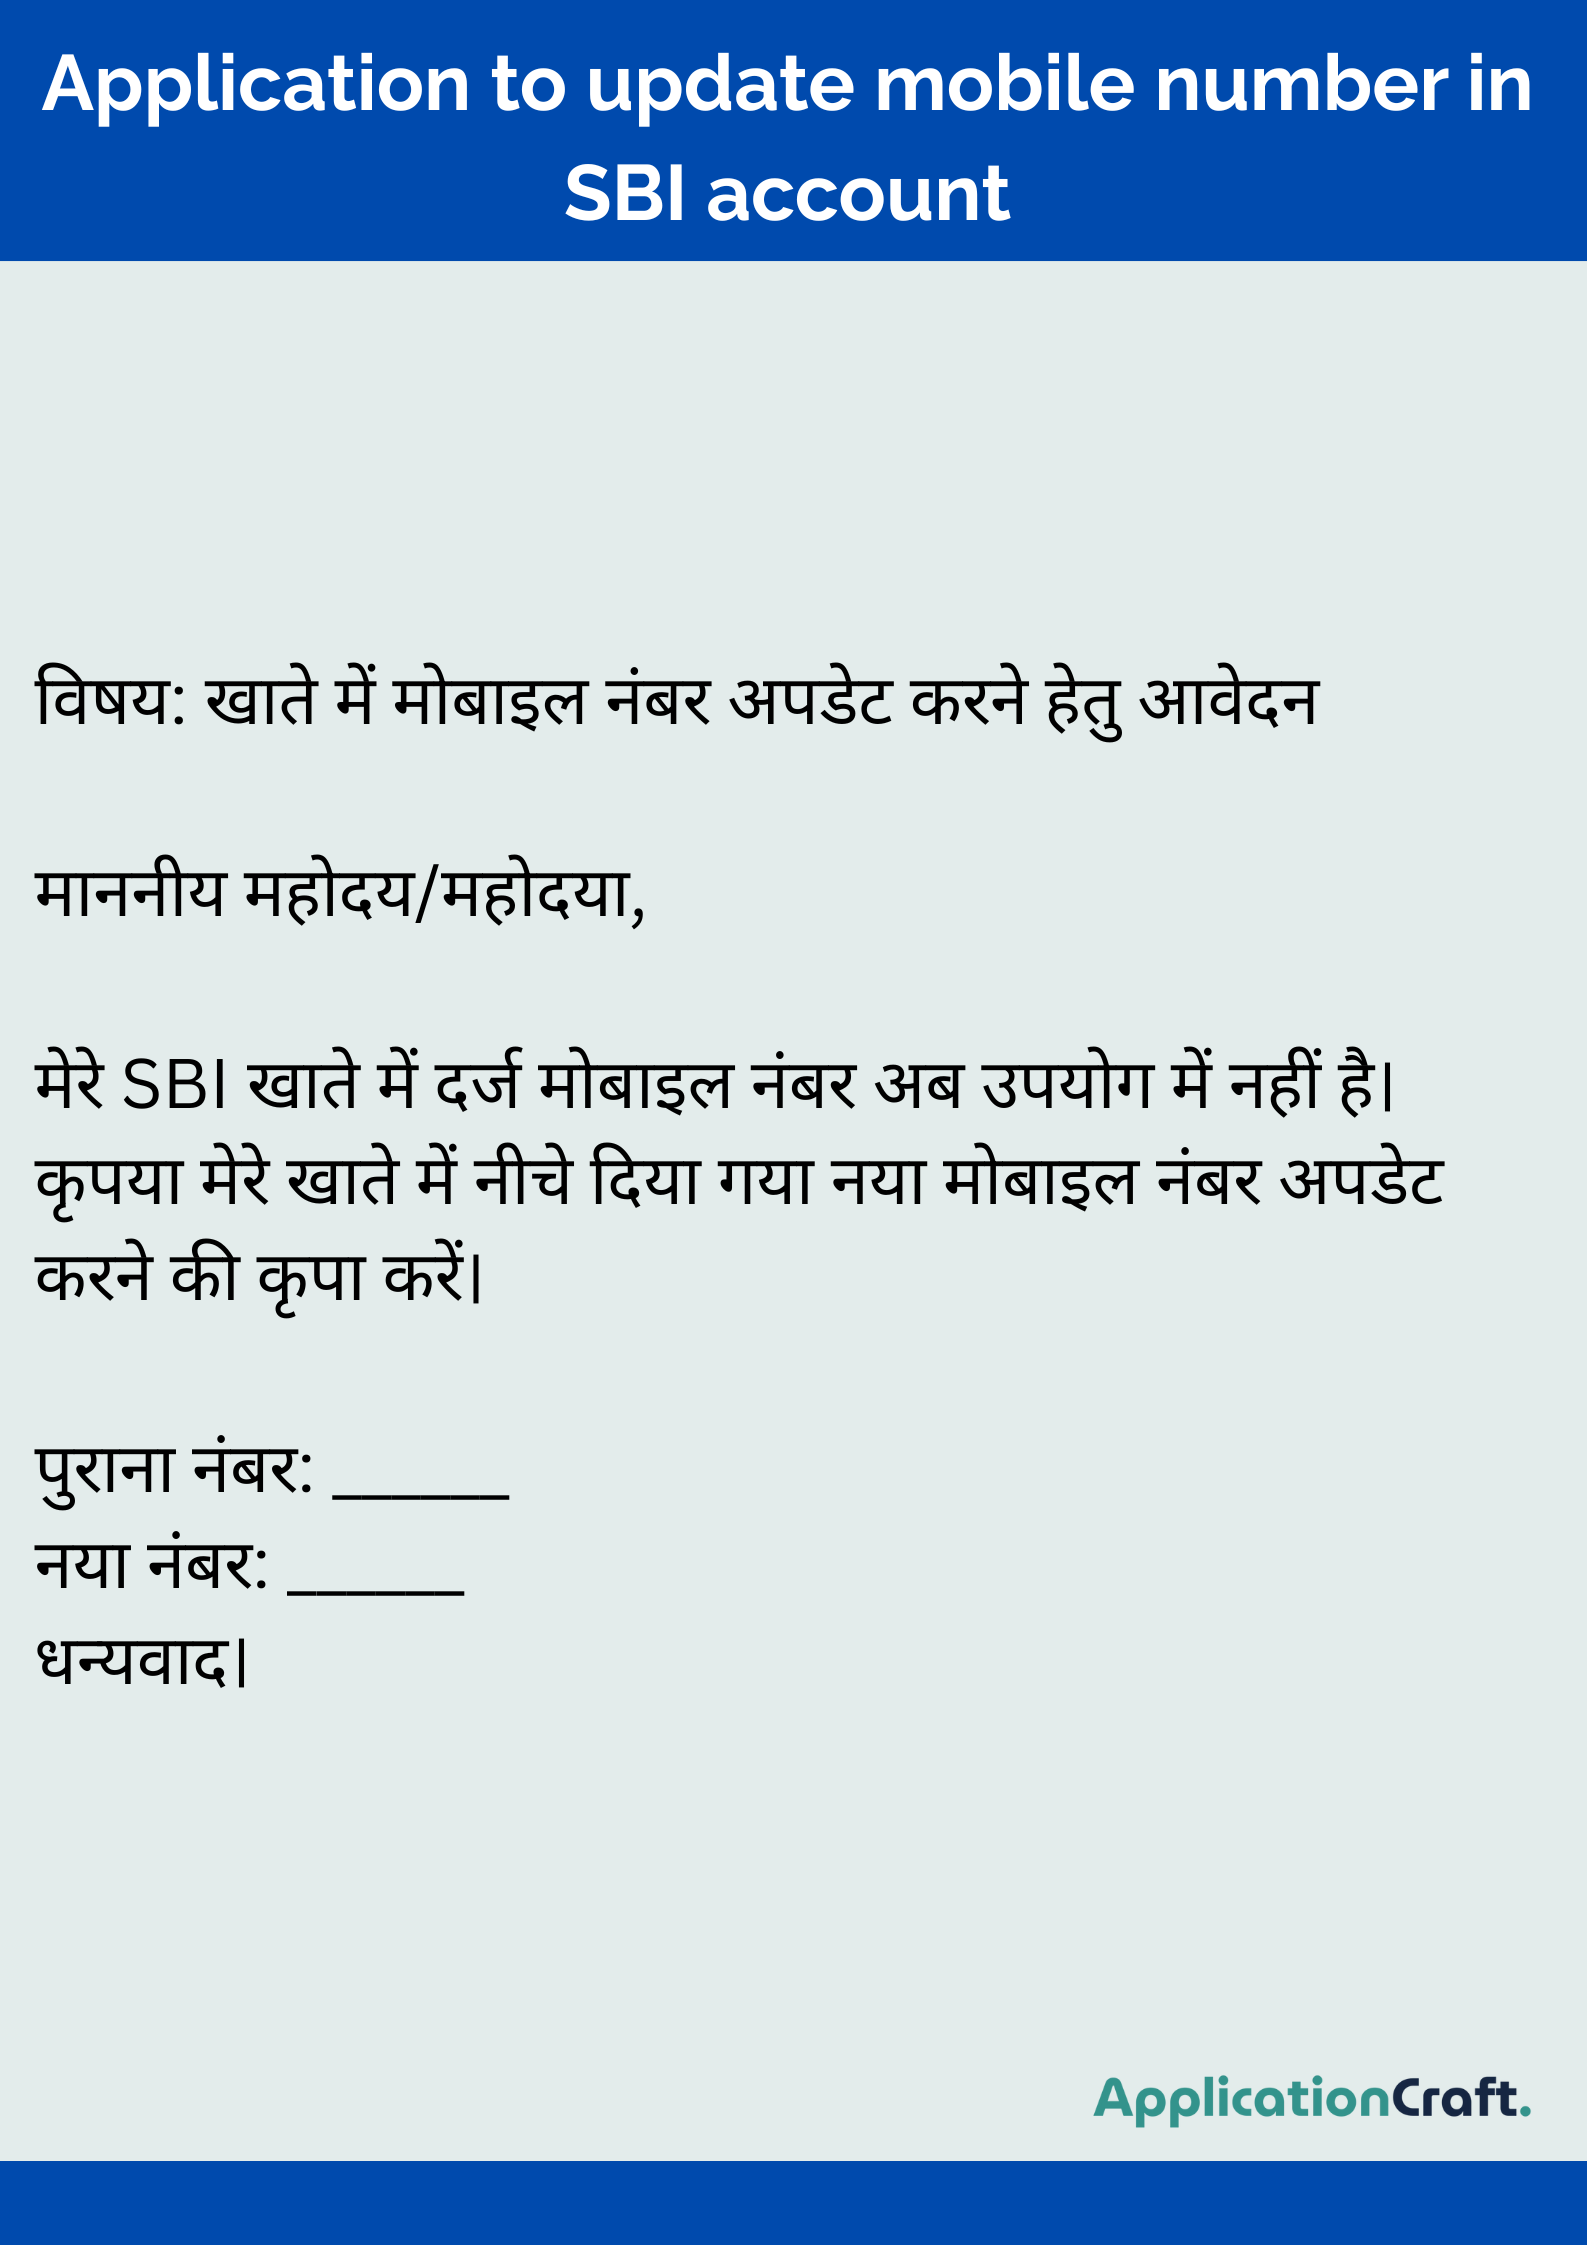 Application to update mobile number in
SBI account
विषय: खाते में मोबाइल नंबर अपडेट करने हेतु आवेदन
माननीय महोदय/महोदया,
मेरे SBI खाते में दर्ज मोबाइल नंबर अब उपयोग में नहीं है।
कृपया मेरे खाते में नीचे दिया गया नया मोबाइल नंबर अपडेट
करने की कृपा करें।
पुराना नंबर: ______
नया नंबर: ______
धन्यवाद।
ApplicationCraft.